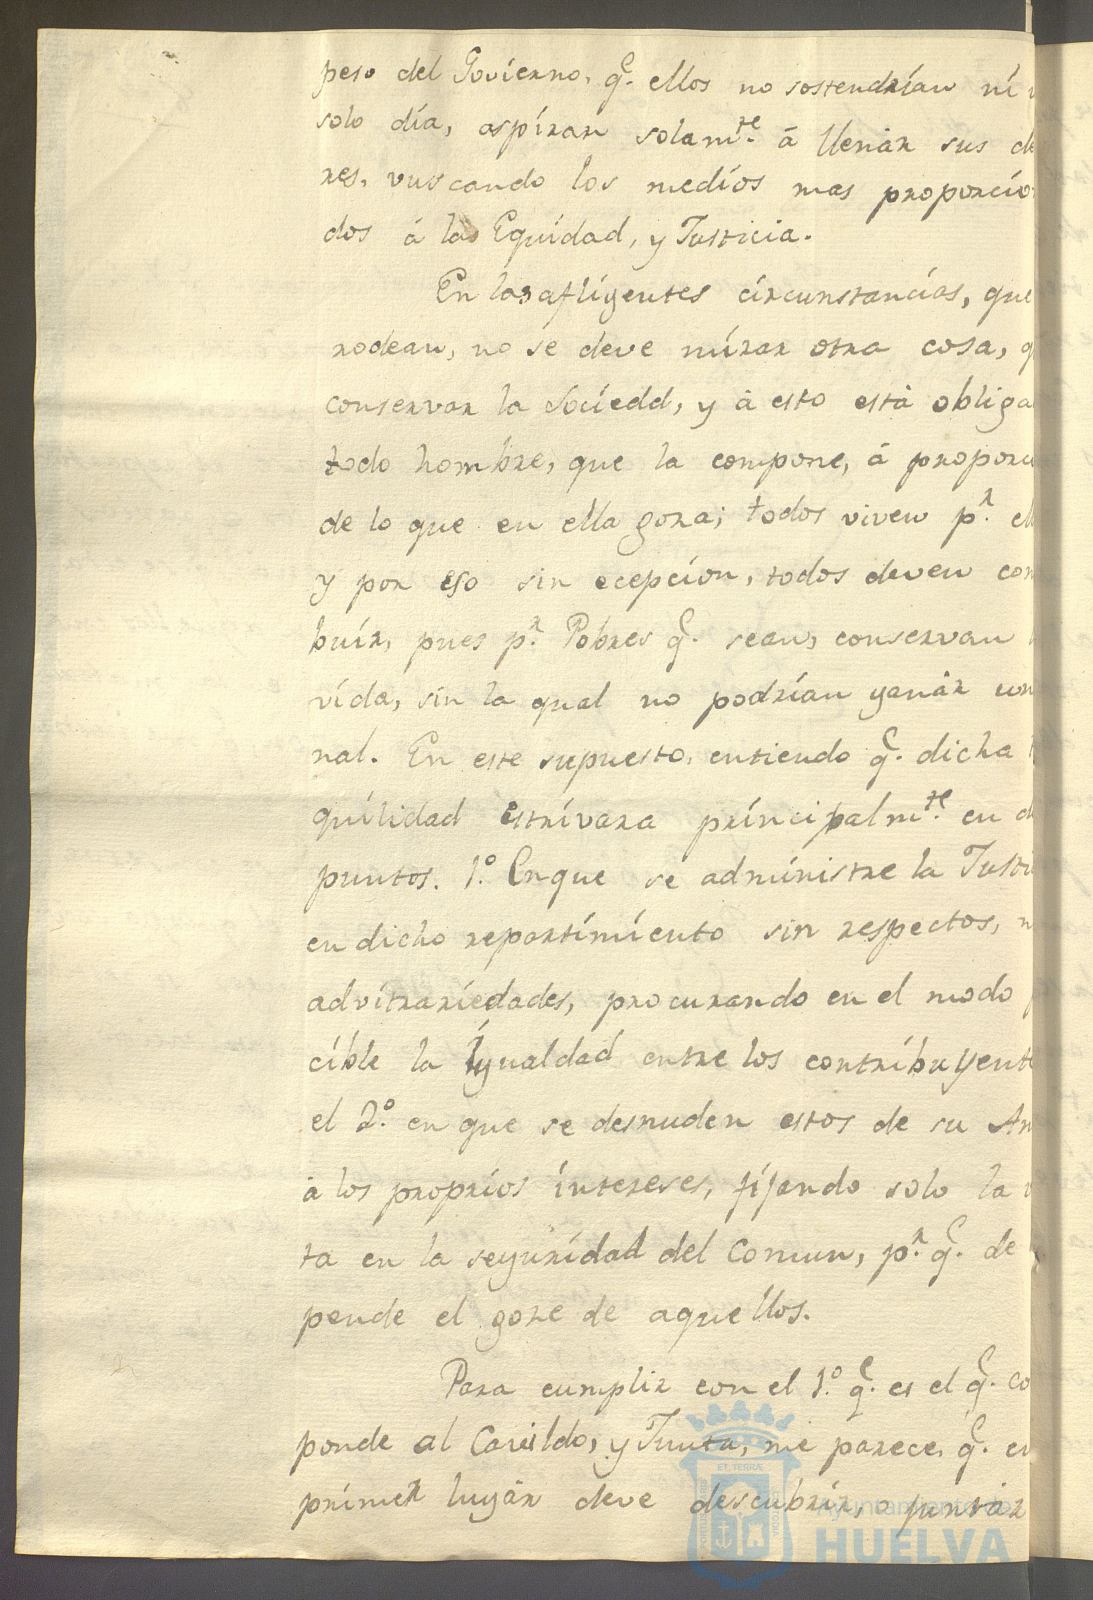 peso del Govierno, q.e ellos no sostendrían ní
solo día, aspíran solam.te á llenár sus de
res, vuscando los medíos mas proporcío
dos á la Equídad, y Justicia.
En las aflígentes círcunstancías, que
rodean, no se deve mírar otra cosa, q
conservar la Socíedd, y á esto está obliga
todo hombre, que la compone, á proporci
de lo que en ella goza; todos viven p.r ell
y por eso sin ecepcíon, todos deven con
buír, pues p.r Pobres q.e sean, conservan
vída, sín la qual no podrían ganár un
nal. En este supuesto, entiendo q.e dicha
quílídad estrívara príncipalm.te en d
puntos. 1.º Enque se admínistre la Justi
en dicho repartímíento sin respectos, n
advítraríedades, procurando en el modo
cíble la Ígualdad entre los contríbuyent
el 2.º en que se desnuden estos de su Am
á los propríos íntereses, fíjando solo la v
ta en la segurídad del Comun, p.r q.e de
pende el goze de aquellos.
Para cumplir con el 1.º q.e es el q.e co
ponde al Cavildo, y Junta, me parece, q.e en
prímer lugár deve descubrír, o juntár
ET TERRÆ
Ayuntamiento de
HUELVA